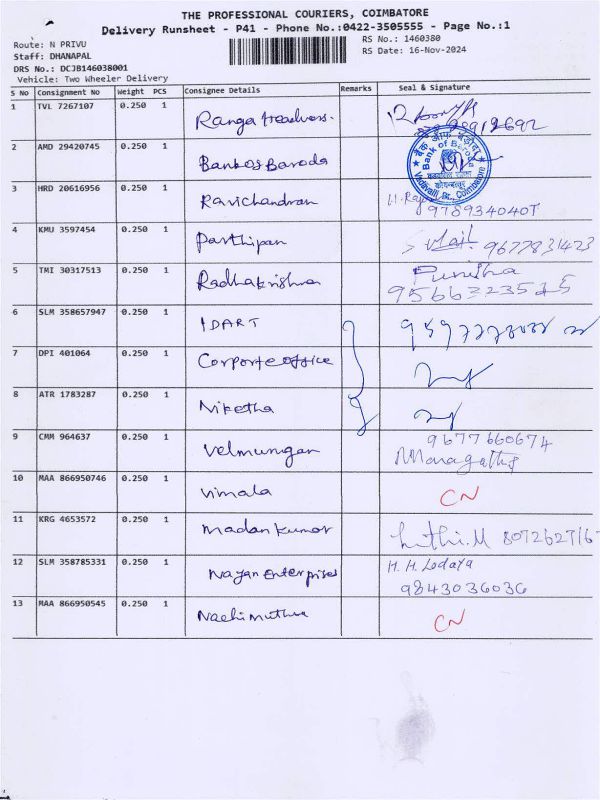 THE PROFESSIONAL COURIERS, COIMBATORE
Delivery Runsheet - P41 - Phone No.:0422-3505555 - Page No.:1
Route: N PRIVU
RS No.: 1460380
Staff: DHANAPAL
RS Date: 16-Nov-2024
DRS No.: DCJB146038001
Vehicle: Two Wheeler Delivery
S No Consignment No Weight PCS Consignee Details Remarks Seal & Signature
1 TVL 7267107 0.250 1 Ranga
2 AMD 29420745 0.250 1 Bank of Baroda बैंक ऑफ़ बड़ौदा Bank of Baroda Vadavalli Br., Coimbatore
3 HRD 20616956 0.250 1 Ravichandran
4 KMU 3597454 0.250 1 Parthipan 9677831423
5 TMI 30317513 0.250 1 Radhakrishna Punitha
9566323515
6 SLM 358657947 0.250 1 IDART
7 DPI 401064 0.250 1 Corporte office
8 ATR 1783287 0.250 1 Niketha
9 CMM 964637 0.250 1 Velmurugan 9677660674
10 MAA 866950746 0.250 1 Vimala CN
11 KRG 4653572 0.250 1 Madan Kumar
12 SLM 358785331 0.250 1 Nayan Enterprises H. H. Lodaya
9843036036
13 MAA 866950545 0.250 1 Nachimuthu CN